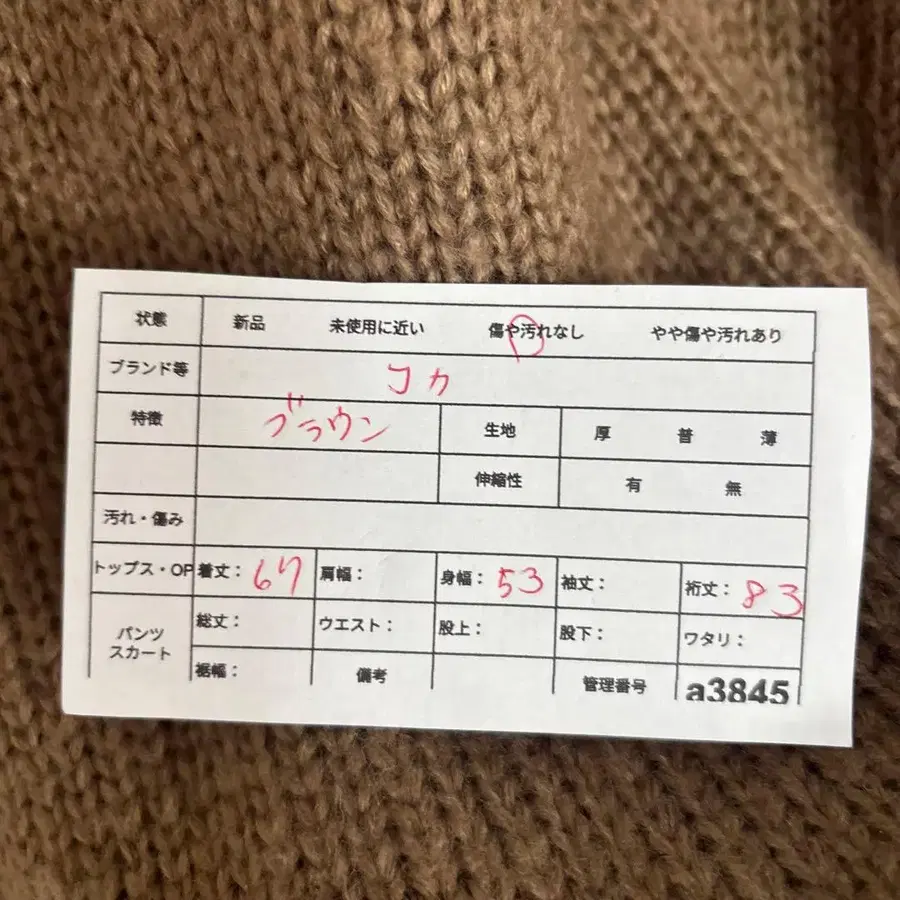 状態 新品 未使用に近い 傷や汚れなし やや傷や汚れあり
ブランド等 コカ
特徴 ブラウン 生地 厚 普 薄
伸縮性 有 無
汚れ・傷み
トップス・OP 着丈: 67 肩幅: 身幅: 53 袖丈: 裄丈: 83
パンツ スカート 総丈: ウエスト: 股上: 股下: ワタリ:
裾幅: 備考 管理番号 a3845